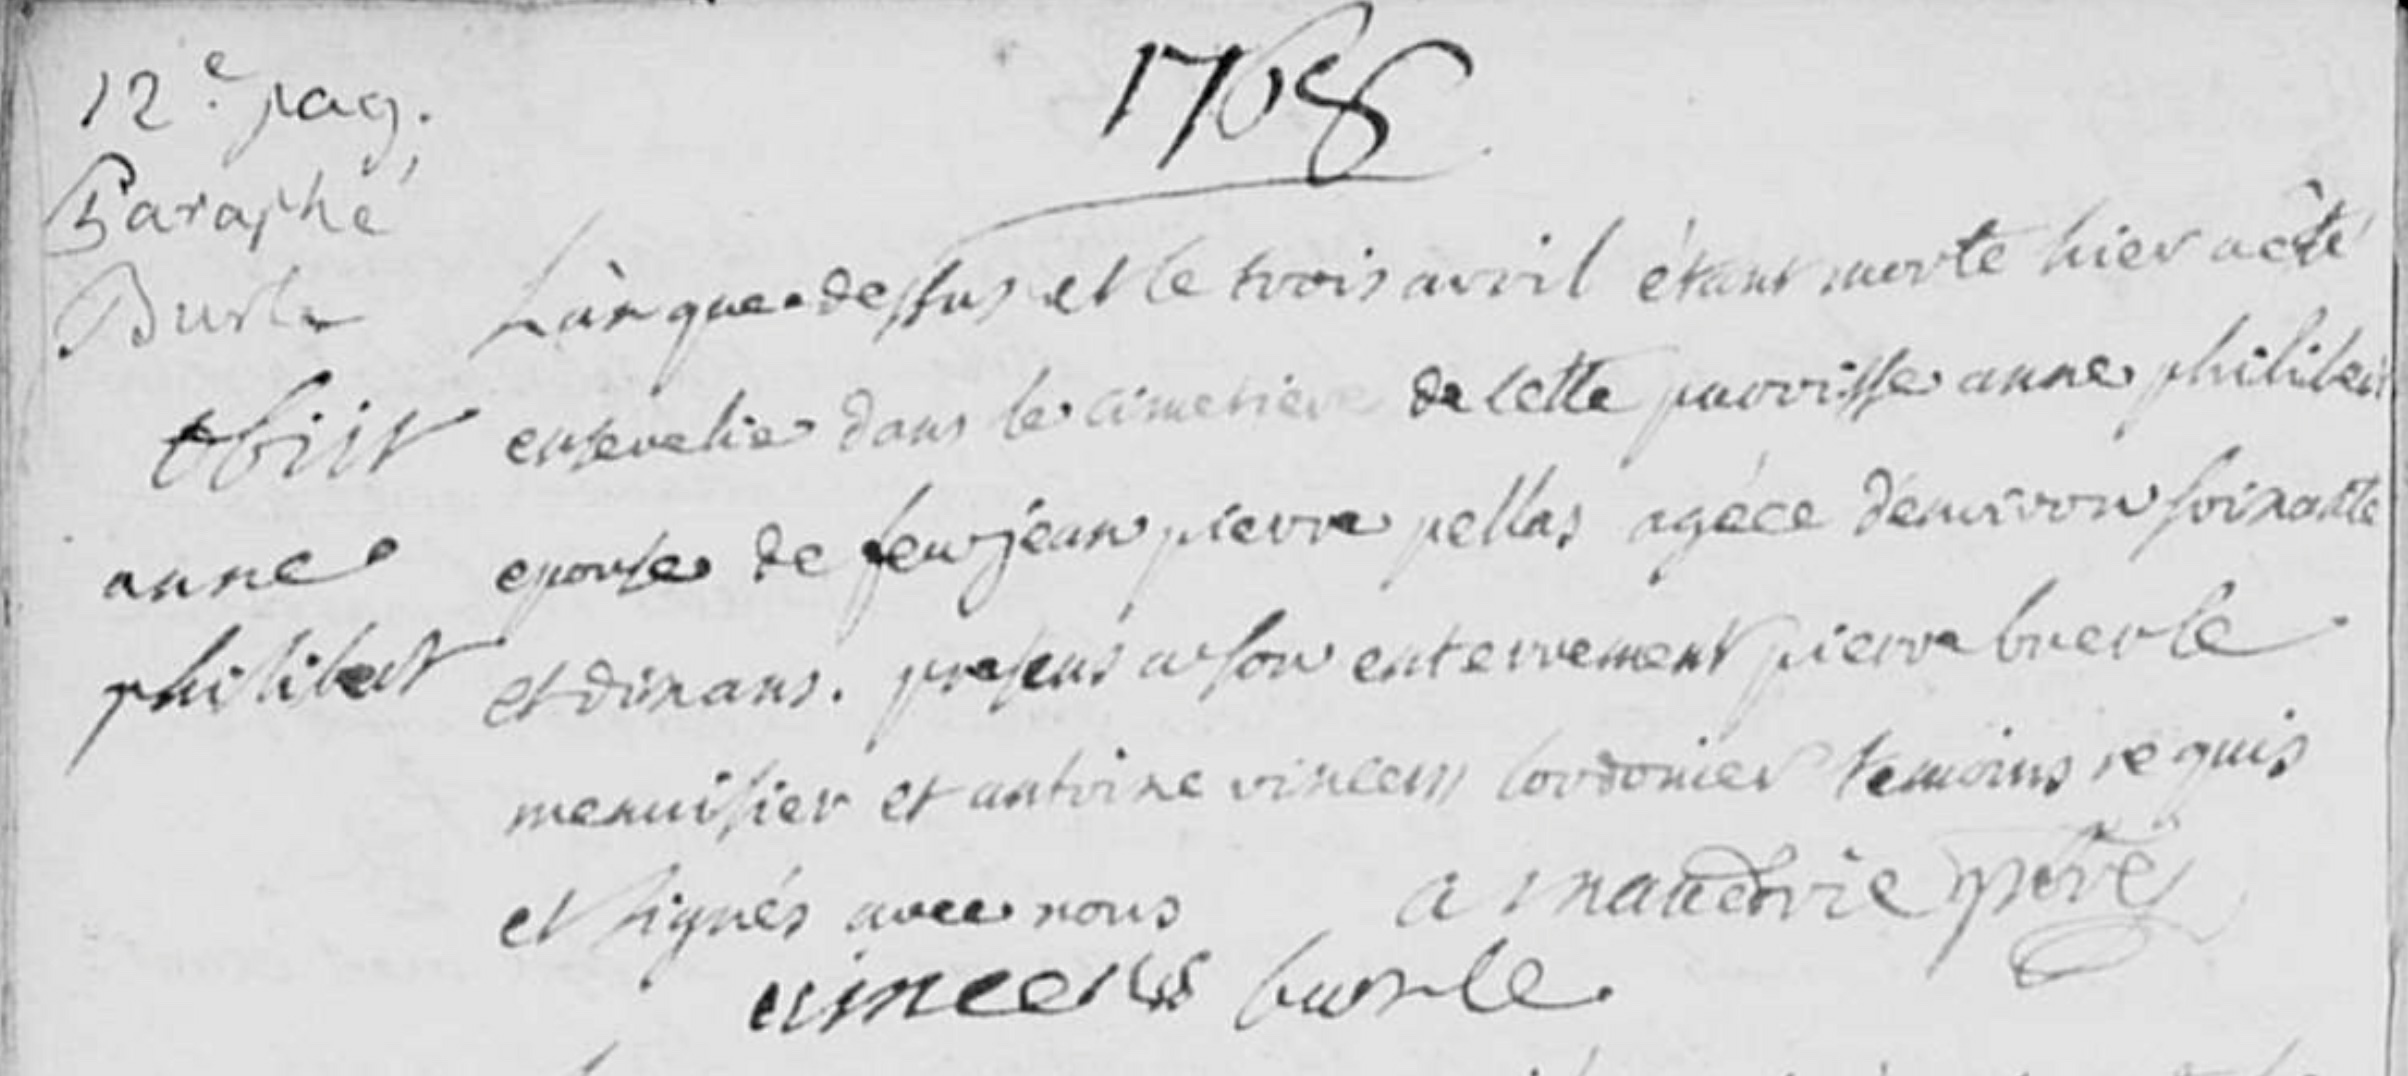 1768
12.e pag.
Paraphé
Burle
obiit
anne
philibert
L'an que dessus et le trois avril étant morte hier a été
ensevelie dans le cimetiere de cette parroisse anne philibert
epouse de feu jean pierre pellas agéee d'environ soixante
et dix ans. presens a son enterrement pierre buerle
menuisier et antoine vincens cordonier temoins requis
et signés avec nous
vincens burle